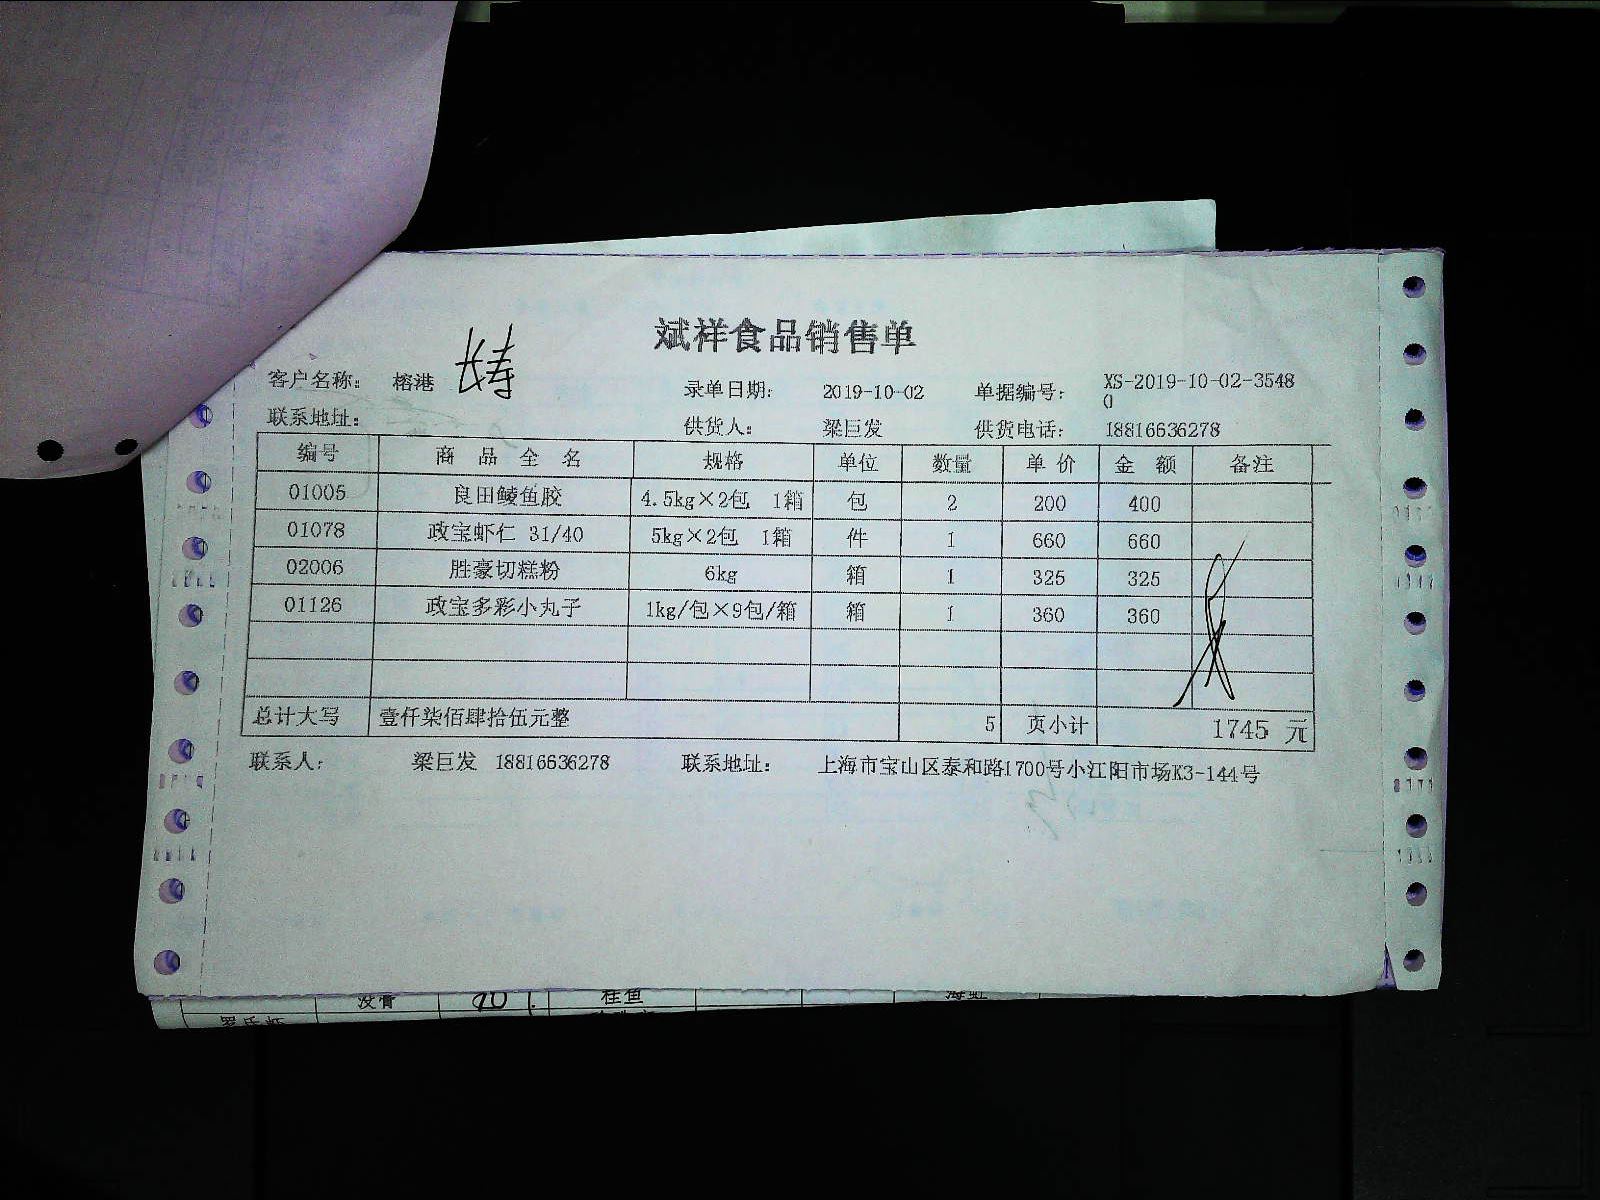 斌祥食品销售单
客户名称： 榕港 长寿 录单日期： 2019-10-02 单据编号： XS-2019-10-02-3548
0
联系地址： 供货人： 梁巨发 供货电话： 18816636278
编号 商 品 全 名 规格 单位 数量 单 价 金 额 备注
01005 良田鲮鱼胶 4.5kg×2包 1箱 包 2 200 400
01078 政宝虾仁 31/40 5kg×2包 1箱 件 1 660 660
02006 胜豪切糕粉 6kg 箱 1 325 325
01126 政宝多彩小丸子 1kg/包×9包/箱 箱 1 360 360
总计大写 壹仟柒佰肆拾伍元整 5 页小计 1745 元
联系人： 梁巨发 18816636278 联系地址： 上海市宝山区泰和路1700号小江阳市场K3-144号
没骨 90 桂鱼 海虹